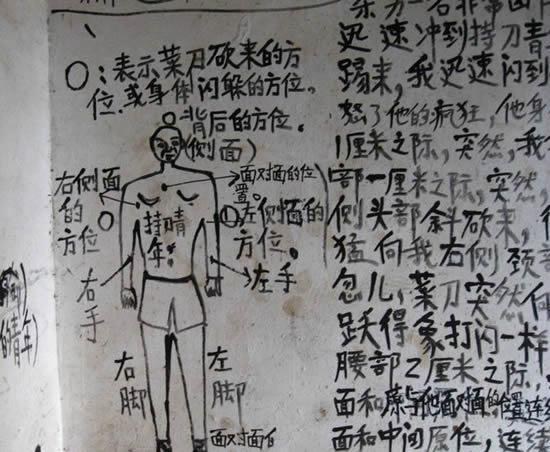 ○:表示菜刀砍来的方
位.或身体闪躲的方位。
背后的方位。
(侧面)
右侧面
的
方位
面对面的位
置
左侧面的
方位。
右手
左手
右脚
左脚
面对面
的青年)
迅速冲到持刀青
踢来,我迅速闪到
怒了他的疯狂,他身
1厘米之际,突然,我
部一厘米之际,突然,
侧头部斜砍来,
猛向我右侧颈部
忽儿,菜刀突然
跃得象打闪一样
腰部2厘米之际,
面和
面对面的位置连续
面和中间原位,连续